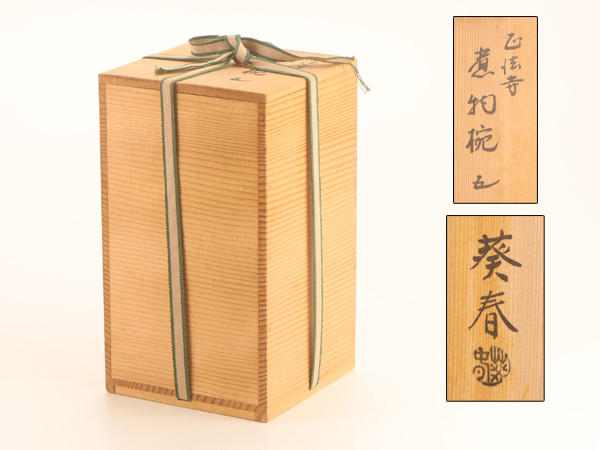 正法寺
煮物椀 五
葵春